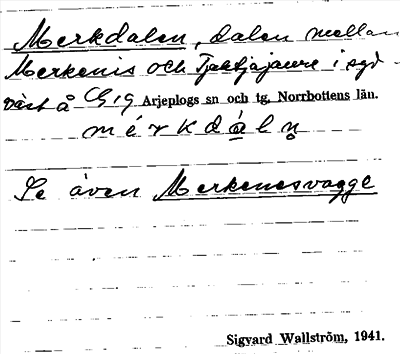 Merkdalen, dalen mellan
Merkenis och Tjaktjajaure i syd-
väst å Gsg Arjeplogs sn och tg. Norrbottens län.
mérkdáln̥
Se även Merkenesvagge
Sigvard Wallström, 1941.